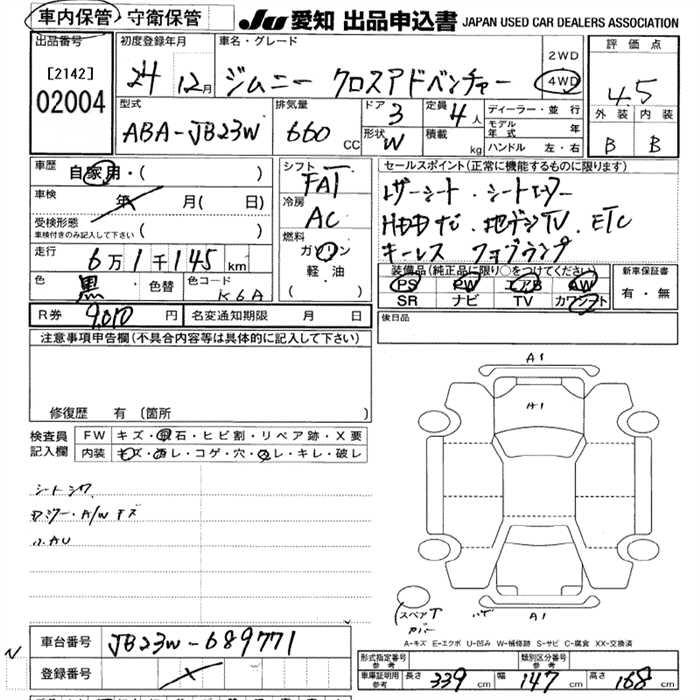 車内保管・守衛保管
JU 愛知 出品申込書 JAPAN USED CAR DEALERS ASSOCIATION
出品番号 初度登録年月 車名・グレード 2WD 評価点
[2142] 24 12月 ジムニー クロスアドベンチャー 4WD 4.5
02004 型式 排気量 ドア 3 定員 4人 ディーラー・並行 外装 内装
ABA-JB23W 660 CC 形状 W 積載 kg モデル年式 年 B B
ハンドル 左・右
車歴 自家用・( ) シフト FAT セールスポイント(正常に機能するものに限ります)
車検 年 月( 日) 冷房 AC レザーシート・シートヒーター
受検形態 HDDナビ 地デジTV ETC
車検付きのみ記入して下さい ( ) 燃料 キーレス フォグランプ
走行 6万1千145km ガソリン 装備品(純正品に限り○をつけてください) 新車保証書
色 黒 色替 色コード K6A 軽油 PS PW エアB AW 有・無
( ) SR ナビ TV カワシート
R券 9,010円 名変通知期限 月 日 後日品
注意事項申告欄(不具合内容等は具体的に記入して下さい)
A1
A1
修復歴 有(箇所
検査員 FW キズ・飛石・ヒビ割・リペア跡・X要
記入欄 内装 キズ・ヨレ・コゲ・穴・スレ・キレ・破レ
A/Wキズ
小AU
スペアT
カバー
A1
A-キズ E-エクボ U-凹み W-補修跡 S-サビ C-腐食 XX-交換済
車台番号 JB23W-689771
形式指定番号 参考 類別区分番号 参考
登録番号
車庫証明用 参考 長さ 339cm 幅 147cm 高さ 168cm